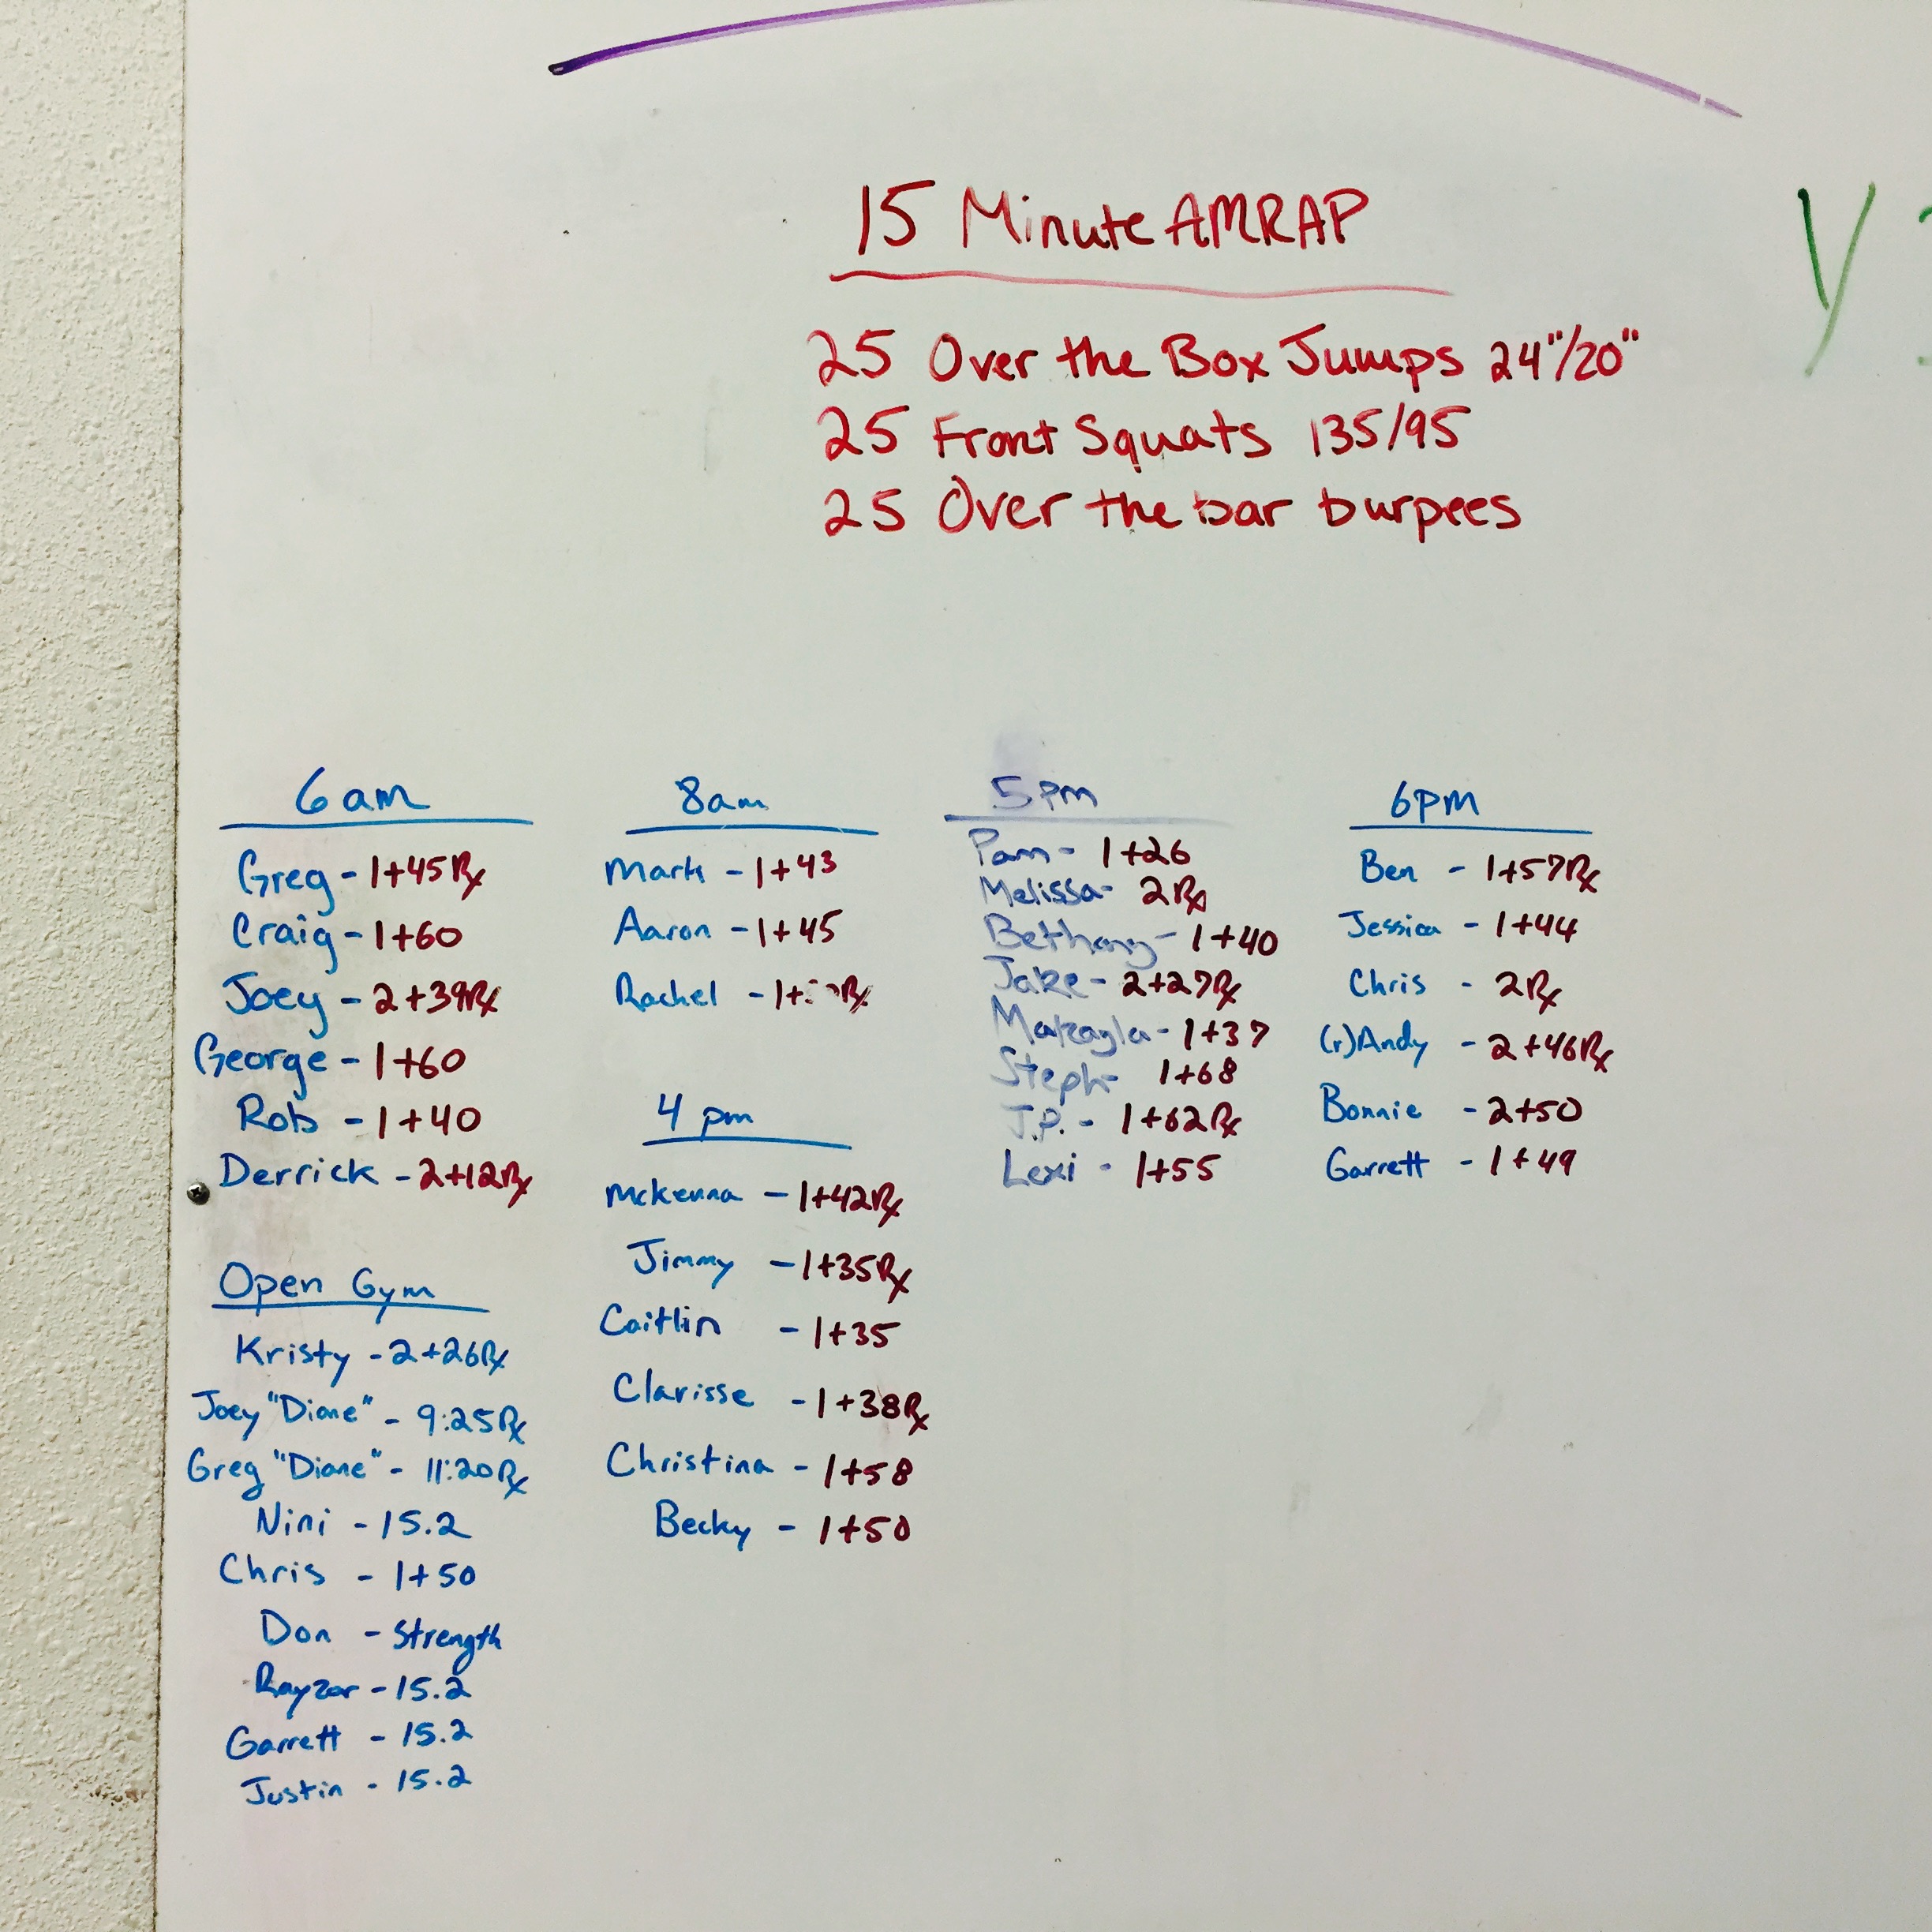 15 Minute AMRAP
25 Over the Box Jumps 24"/20"
25 Front Squats 135/95
25 Over the bar burpees
6am
Greg - 1+45 Rx
Craig - 1+60
Joey - 2+39 Rx
George - 1+60
Rob - 1+40
Derrick - 2+12 Rx
Open Gym
Kristy - 2+26 Rx
Joey "Diane" - 9:25 Rx
Greg "Diane" - 11:20 Rx
Nini - 15.2
Chris - 1+50
Don - Strength
Rayzor - 15.2
Garrett - 15.2
Justin - 15.2
8am
Mark - 1+43
Aaron - 1+45
Rachel -
4 pm
Mckenna - 1+42 Rx
Jimmy - 1+35 Rx
Caitlin - 1+35
Clarisse - 1+38 Rx
Christina - 1+58
Becky - 1+50
5pm
Pam - 1+26
Melissa - 2 Rx
Bethany - 1+40
Jake - 2+27 Rx
Makayla - 1+37
Steph - 1+68
J.P. - 1+62 Rx
Lexi - 1+55
6pm
Ben - 1+57 Rx
Jessica - 1+44
Chris - 2 Rx
(r)Andy - 2+46 Rx
Bonnie - 2+50
Garrett - 1+49